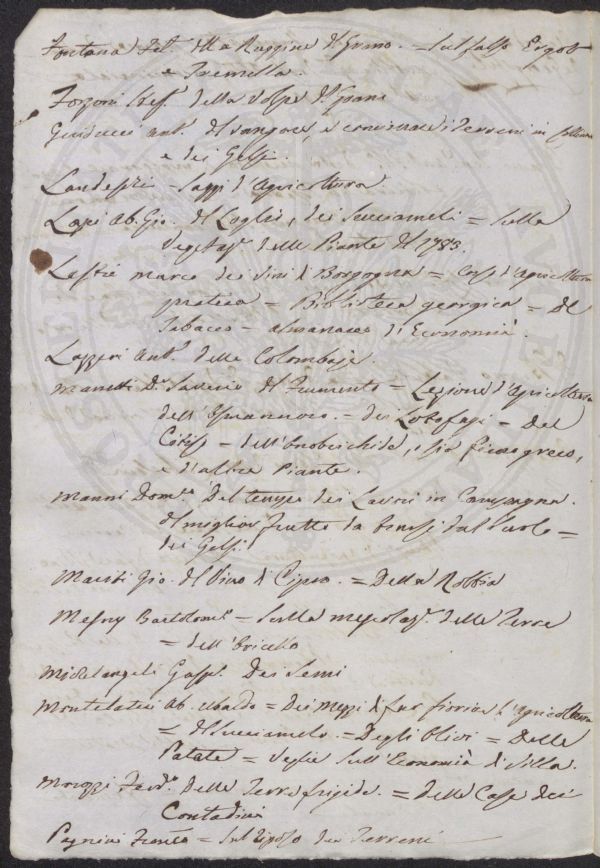 Fontana Fel. della Ruggine del Grano = Sul falso Ergot
e Tremella.
Forzoni Stef. della Volpe del Grano
Guiducci Ant. del vangare, e terreni in
e dei Gelsi.
Landeschi = Saggi d'Agricoltura
Lapi Ab. Gio. del Loglio, dei Succiameli = Sulla
delle Piante del 1783.
Lastri Marco dei vini di Borgogna = Corso d'Agricoltura
pratica = Biblioteca georgica = Del
Tabacco = Almanacco d'Economia.
Lapperi Ant. delle Colombaje
Manetti Dr. Saverio del Frumento = Lezione d'Agricoltura
dell' = dei Lotofagi = Del
= dell' , o sia fieno greco,
e d'altre Piante.
Manni Dom.co Del tempo dei Lavori in Campagna.
del miglior Frutto da dal Suolo =
dei Gelsi
Mariti Gio. del Vino di Cipro = Della Robbia
Mesny Bartolom. = Sulla delle Terre
= dell'Oricello
Michelangeli Gasp. Dei Semi
Montelatici Ab. Ubaldo = Dei Mezzi di far fiorire l'Agricoltura
= del Succiamelo = Degli Olivi = Delle
Patate = Veglie sull'Economia di Villa.
Morozzi Ferd.o Delle Terre frigide = delle Case dei
Contadini
Pagnini = Sul riposo dei Terreni